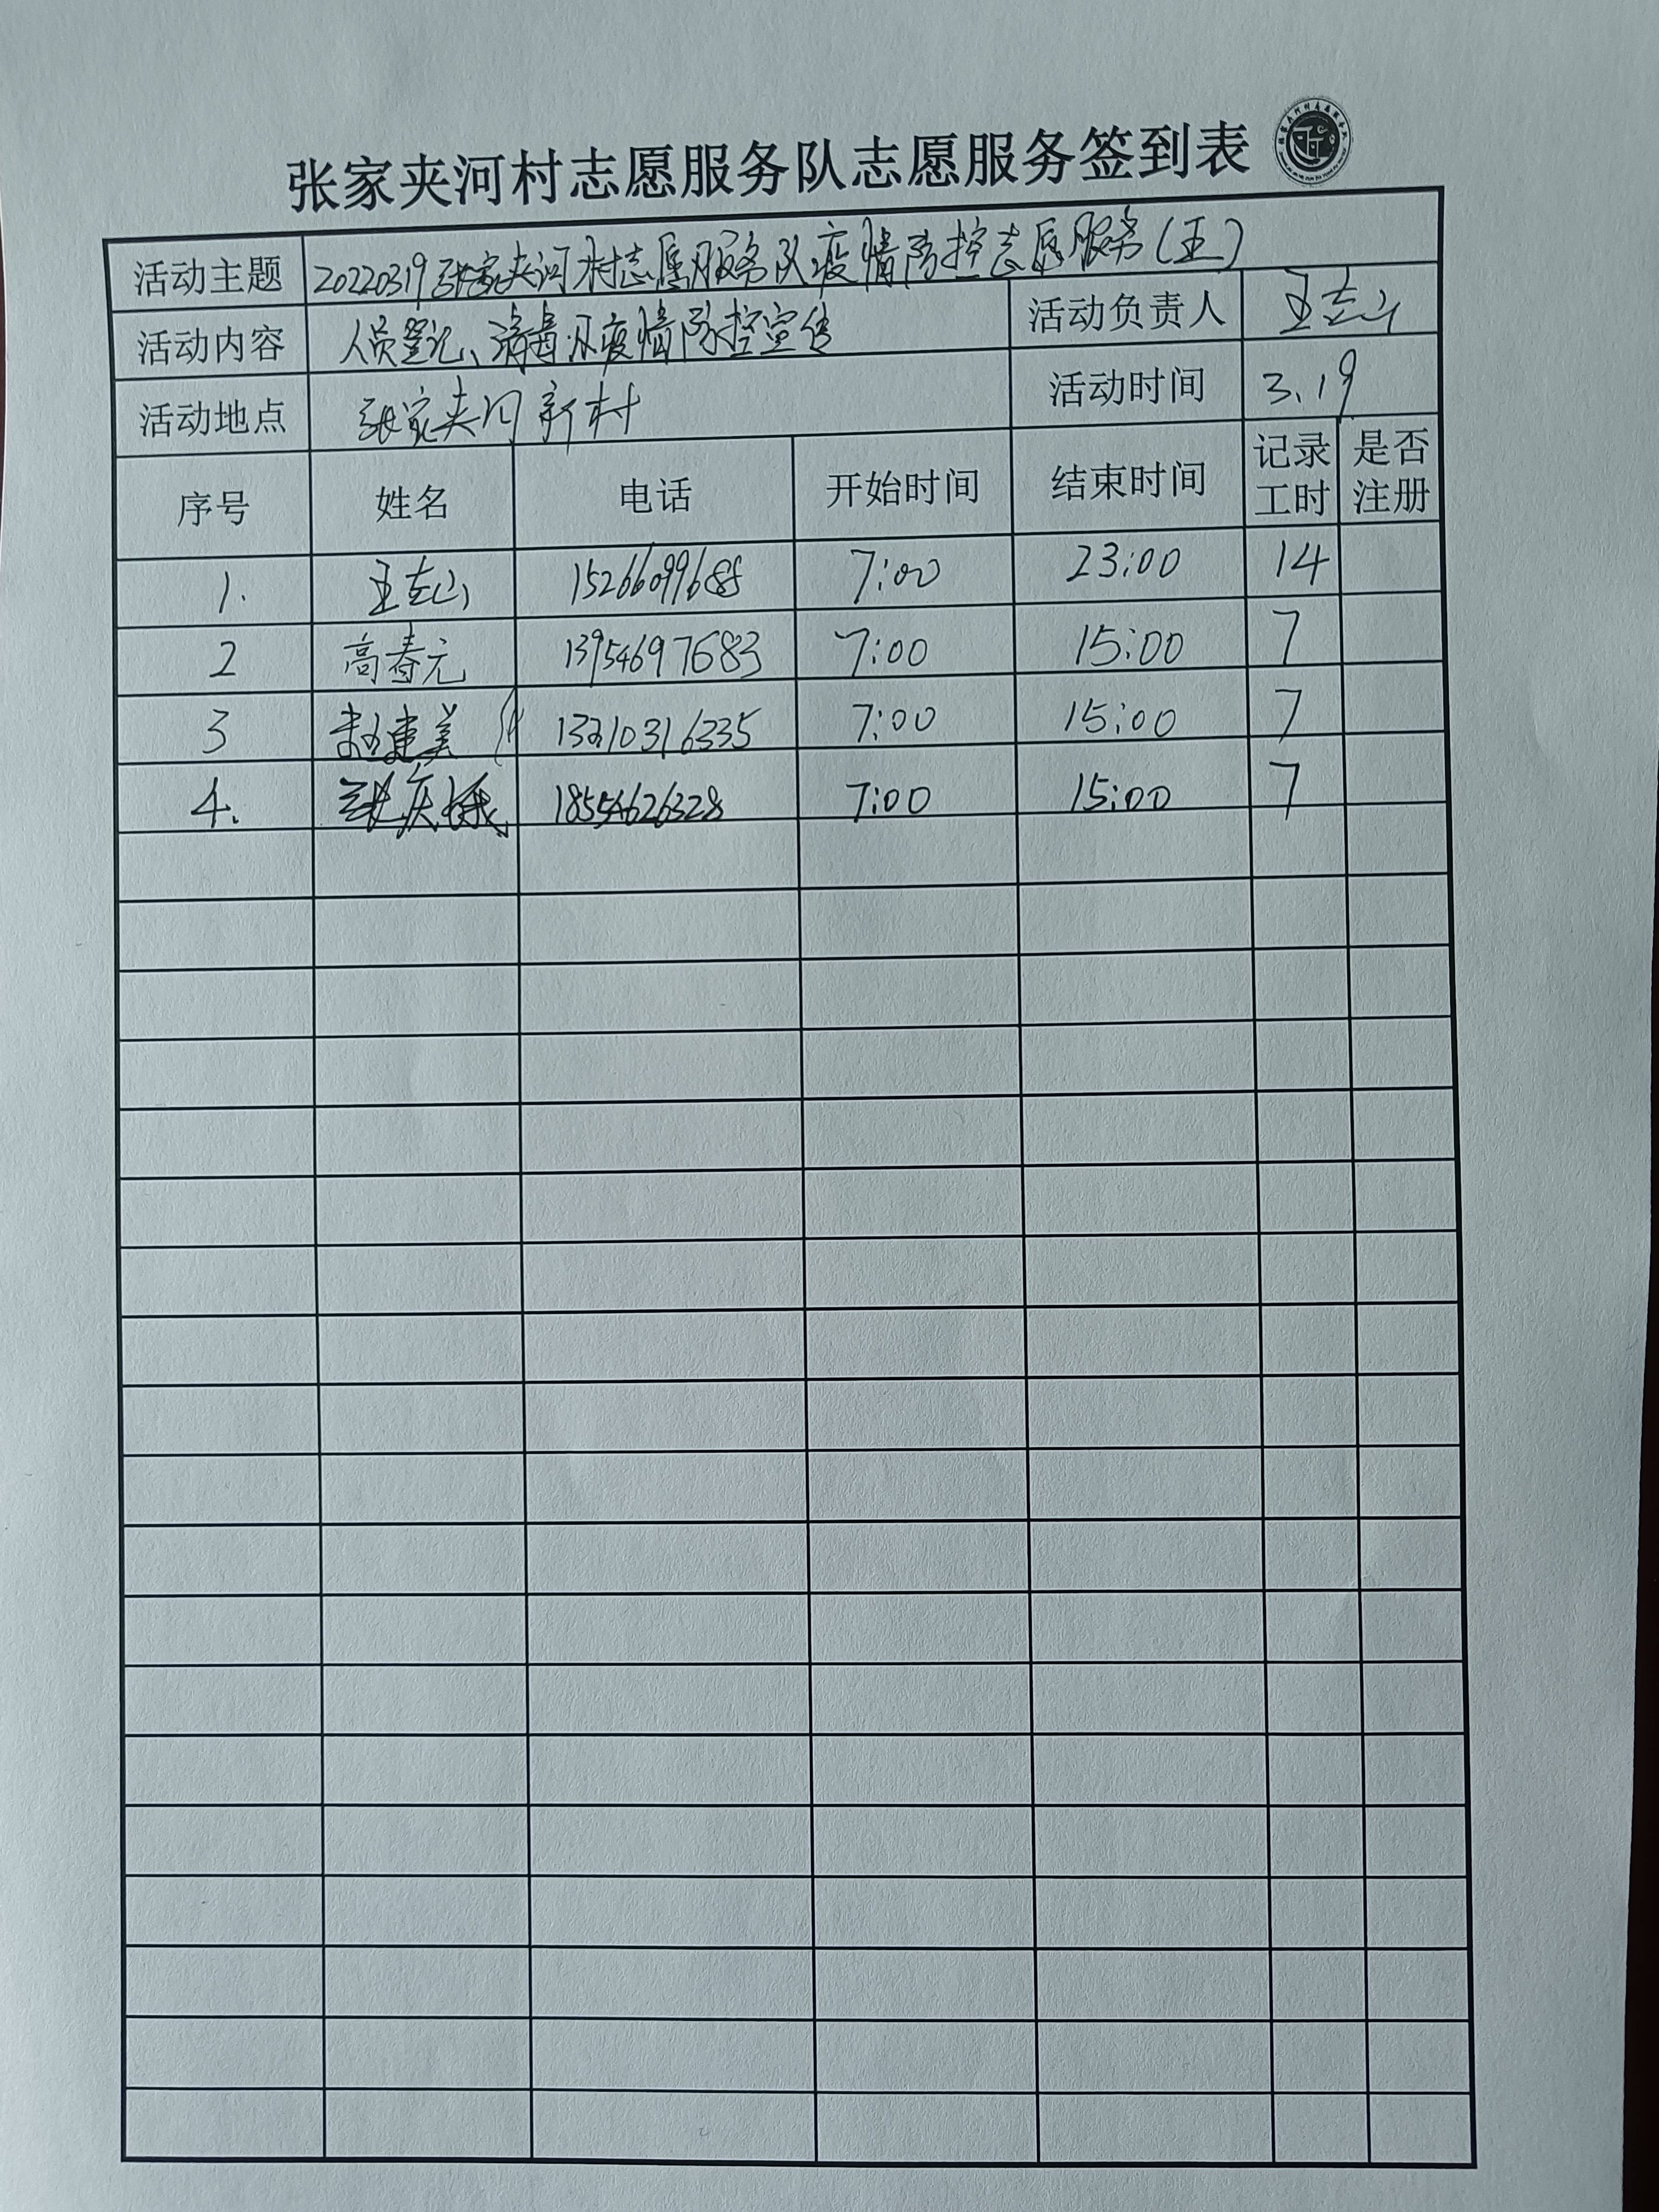 张家夹河村志愿服务队志愿服务签到表
活动主题 20220319张家夹河村志愿服务队疫情防控志愿服务(王)
活动内容 人员登记、消毒及疫情防控宣传 活动负责人 王志山
活动地点 张家夹河新村 活动时间 3.19
序号 姓名 电话 开始时间 结束时间 记录工时 是否注册
1. 王志山 15266099688 7:00 23:00 14
2 高春元 13954697683 7:00 15:00 7
3 赵建美 7:00 15:00 7
4. 张庆娥 7:00 15:00 7